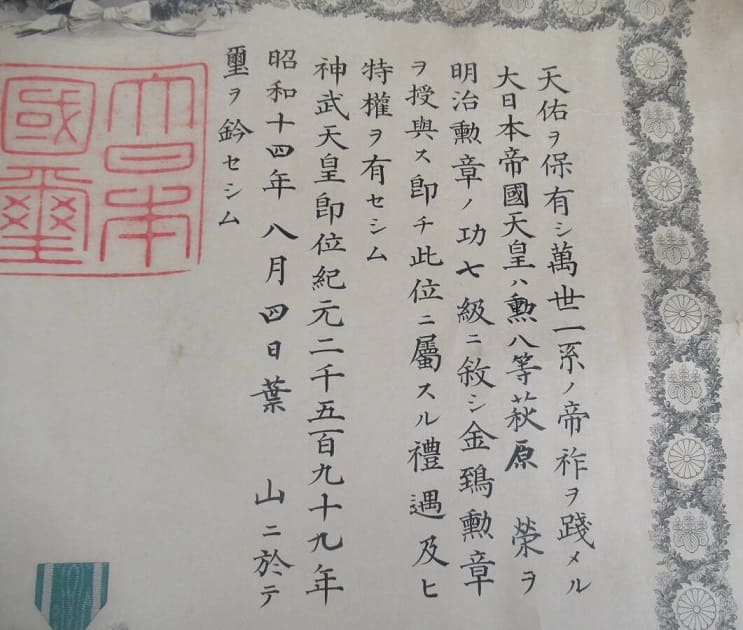 天佑ヲ保有シ萬世一系ノ帝祚ヲ踐メル
大日本帝國天皇ハ勲八等萩原　榮ヲ
明治勲章ノ功七級ニ敘シ金鵄勲章
ヲ授與ス即チ此位ニ屬スル禮遇及ヒ
特權ヲ有セシム
神武天皇即位紀元二千五百九十九年
昭和十四年八月四日葉　山ニ於テ
璽ヲ鈐セシム
大日本
國璽